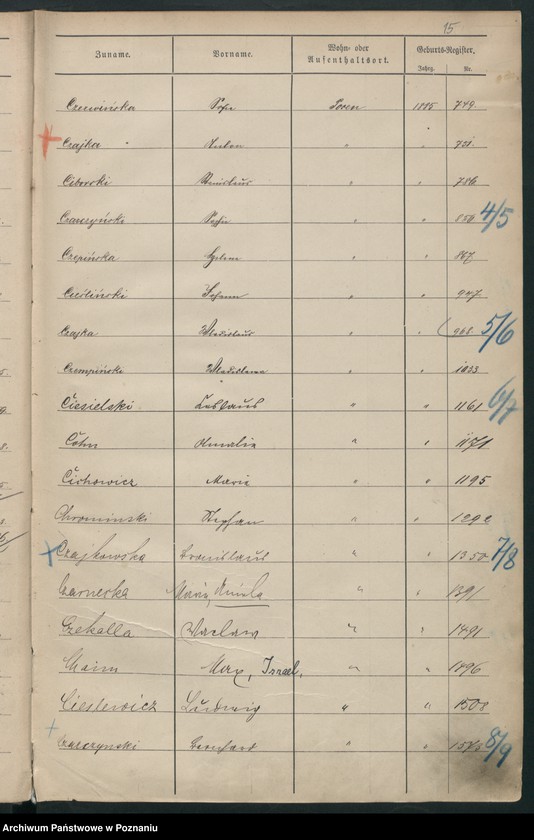 15
Zuname. Vorname. Wohn- oder Aufenthaltsort. Geburts-Register.
Jahrg. Nr.
Czerwińska Posen 1895 749
Czajka Anton " " 721
Ciborski Stanislaus " " 786
" " 850 4/5
Czepińska Helene " " 867
Cieśliński Johann " " 947
Czajka Wladislaus " " 968 5/6
Czempińska Wladislawa " " 1033
Ciesielski " " 1161 6/7
Cohn Amalie " " 1171
Cichowicz Marie " " 1195
Chrominski Stephan " " 129
Czajkowska Bronislaus " " 1350 7/8
Czarnecka Maria, Aniela " " 1391
Czekalla Vaclaw " " 1491
Chaim Max, Israel, " " 1496
Cieslewicz Ludwig " " 1508
Czarczynski Bernhard " " 8/9
Archiwum Państwowe w Poznaniu